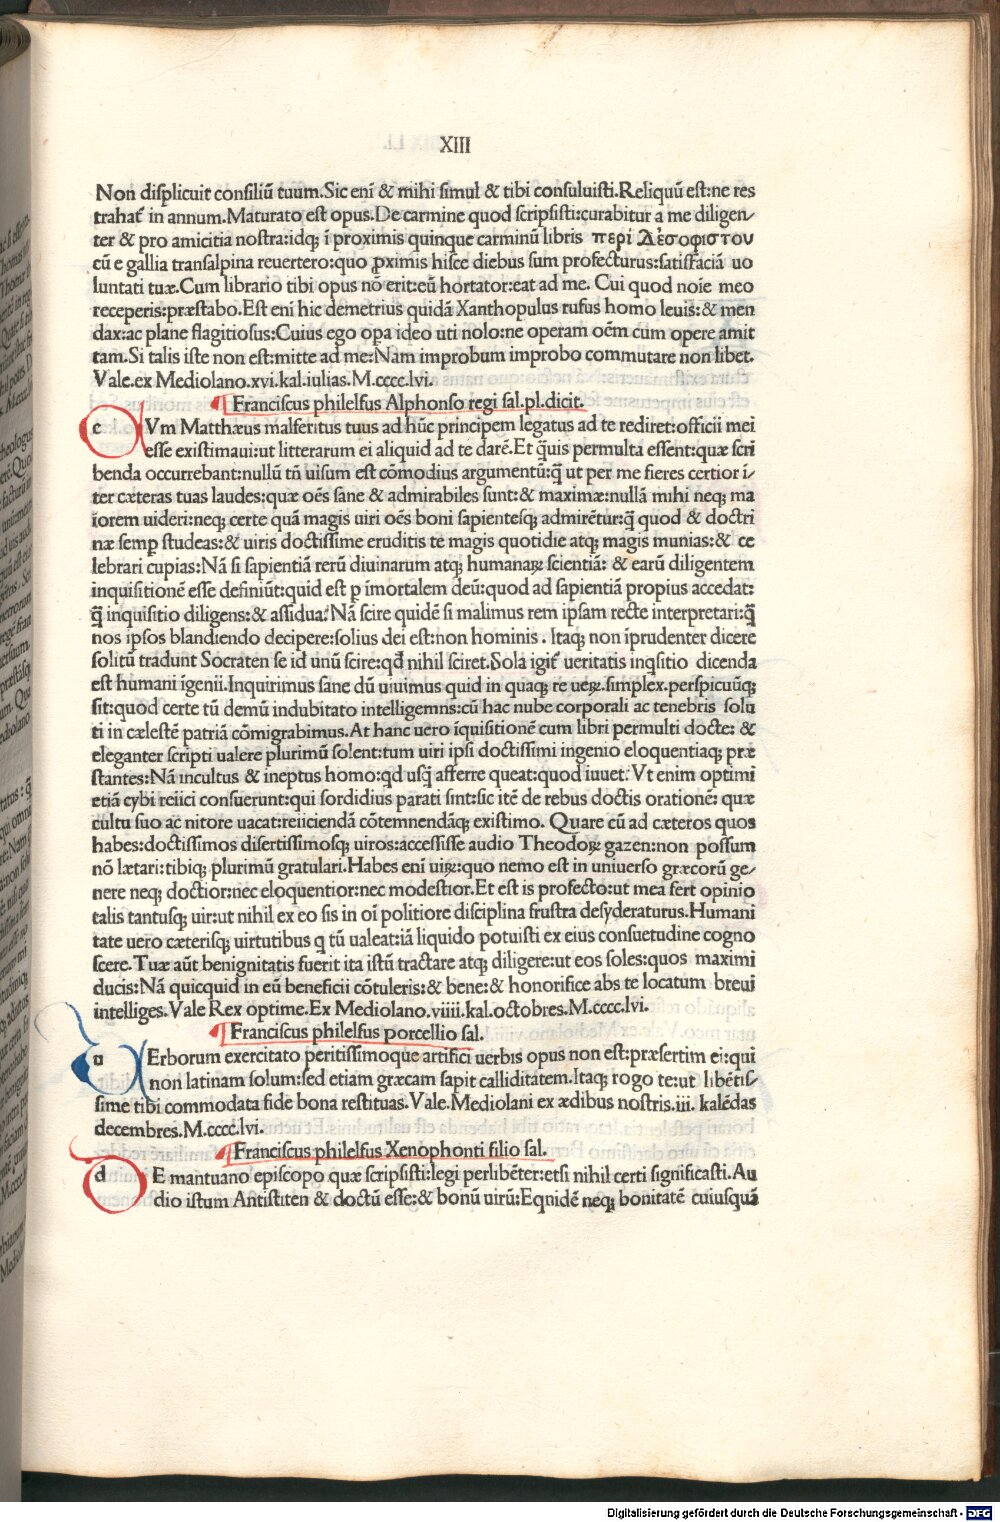 XIII
Non displicuit consiliū tuum.Sic eni & mihi simul & tibi consuluisti.Reliquū est:ne res
trahat in annum.Maturato est opus.De carmine quod scripsisti:curabitur a me diligen/
ter & pro amicitia nostra:idq; ī proximis quinque carminū libris περὶ Δεσοφιστου
cū e gallia transalpina reuertero:quo ꝓximis hisce diebus sum profecturus:satisfaciā uo
luntati tuæ.Cum librario tibi opus nō erit:eū hortator:eat ad me. Cui quod noie meo
receperis:præstabo.Est eni hic demetrius quidā Xanthopulus rufus homo leuis:& men
dax:ac plane flagitiosus:Cuius ego opa ideo uti nolo:ne operam oēm cum opere amit
tam.Si talis iste non est:mitte ad me:Nam improbum improbo commutare non libet.
Vale.ex Mediolano.xvi.kal.iulias.M.cccc.lvi.
¶Franciscus philelfus Alphonso regi sal.pl.dicit.
c Vm Matthæus malferitus tuus ad hūc principem legatus ad te rediret:officii mei
esse existimaui:ut litterarum ei aliquid ad te darē.Et q̄uis permulta essent:quæ scri
benda occurrebant:nullū tn̄ uisum est cōmodius argumentū:q̄ ut per me fieres certior ī/
ter cæteras tuas laudes:quæ oēs sane & admirabiles sunt:& maximæ:nullā mihi neq; ma
iorem uideri:neq; certe quā magis uiri oēs boni sapientesq; admirētur:q̄ quod & doctri
næ semp studeas:& uiris doctissime eruditis te magis quotidie atq; magis munias:& ce
lebrari cupias:Nā si sapientiā rerū diuinarum atq; humanaꝝ scientiā: & earū diligentem
inquisitionē esse definiūt:quid est p imortalem deū:quod ad sapientiā propius accedat:
q̄ inquisitio diligens:& assidua?Nā scire quidē si malimus rem ipsam recte interpretari:q̄
nos ipsos blandiendo decipere:solius dei est:non hominis . Itaq; non īprudenter dicere
solitū tradunt Socraten se id unū scire:qd nihil sciret.Sola igit ueritatis inqsitio dicenda
est humani īgenii.Inquirimus sane dū uiuimus quid in quaq; re ueꝝ.simplex.perspicuūq;
sit:quod certe tū demū indubitato intelligemns:cū hac nube corporali ac tenebris solu
ti in cælestē patriā cōmigrabimus.At hanc uero īquisitionē cum libri permulti docte: &
eleganter scripti ualere plurimū solent:tum uiri ipsi doctissimi ingenio eloquentiaq; præ
stantes:Nā incultus & ineptus homo:qd usq̄ afferre queat:quod iuuet?Vt enim optimi
etiā cybi reiici consuerunt:qui sordidius parati sint:sic itē de rebus doctis orationē: quæ
cultu suo ac nitore uacat:reiiciendā cōtemnendāq; existimo. Quare cū ad cæteros quos
habes:doctissimos disertissimosq; uiros:accessisse audio Theodoꝝ gazen:non possum
nō lætari:tibiq; plurimū gratulari.Habes eni uiꝝ:quo nemo est in uniuerso græcorū ge/
nere neq; doctior:nec eloquentior:nec modestior.Et est is profecto:ut mea fert opinio
talis tantusq; uir:ut nihil ex eo sis in oī politiore disciplina frustra desyderaturus.Humani
tate uero cæterisq; uirtutibus q tū ualeat:iā liquido potuisti ex eius consuetudine cogno
scere.Tuæ aūt benignitatis fuerit ita istū tractare atq; diligere:ut eos soles:quos maximi
ducis:Nā quicquid in eū beneficii cōtuleris:& bene:& honorifice abs te locatum breui
intelliges.Vale Rex optime.Ex Mediolano.viiii.kal.octobres.M.cccc.lvi.
¶Franciscus philelfus porcellio sal.
u Erborum exercitato peritissimoque artifici uerbis opus non est:præsertim ei:qui
non latinam solum:sed etiam græcam sapit calliditatem.Itaq; rogo te:ut libētis/
sime tibi commodata fide bona restituas.Vale.Mediolani ex ædibus nostris.iii. kalēdas
decembres.M.cccc.lvi.
¶Franciscus philelfus Xenophonti filio sal.
d E mantuano episcopo quæ scripsisti:legi perlibēter:etsi nihil certi significasti.Au
dio istum Antistiten & doctū esse:& bonū uirū:Eqnidē neq; bonitatē cuiusquā
Digitalisierung gefördert durch die Deutsche Forschungsgemeinschaft - DFG